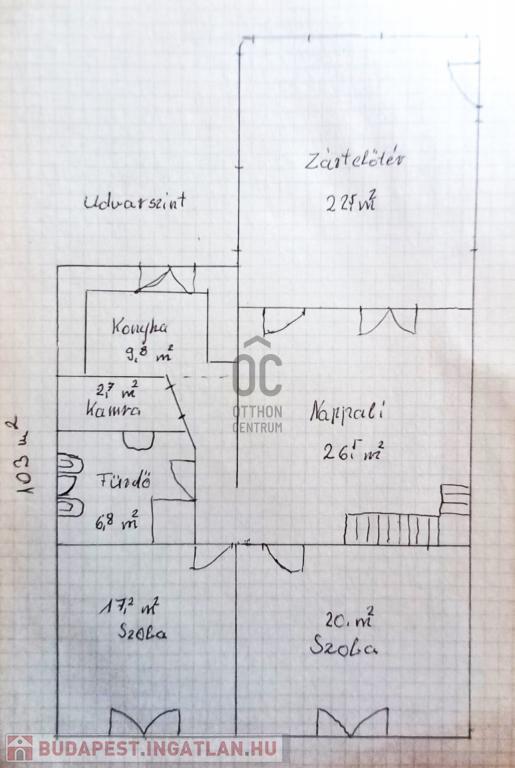 Zártelőtér
22,5 m²
Udvarszint
Konyha
9,8 m²
2,7 m²
Kamra
ÓC
OTTHON
CENTRUM
Nappali
26,5 m²
103 m²
Fürdő
6,8 m²
17,2 m²
Szoba
20. m²
Szoba
BUDAPEST.INGATLAN.HU